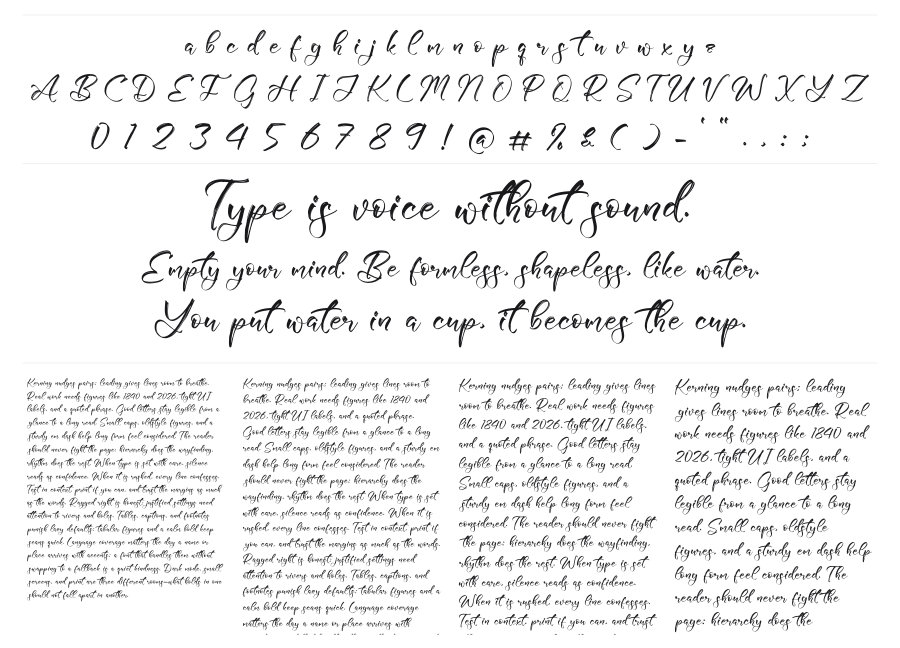 a b c d e f g h i j k l m n o p q r s t u v w x y z
A B C D E F G H I J K L M N O P Q R S T U V W X Y Z
0 1 2 3 4 5 6 7 8 9 ! @ # % & ( ) - ' " . , : ;
Type is voice without sound.
Empty your mind. Be formless, shapeless, like water.
You put water in a cup, it becomes the cup.
Kerning nudges pairs; leading gives lines room to breathe.
Real work needs figures like 1840 and 2026, tight UI
labels, and a quoted phrase. Good letters stay legible from a
glance to a long read. Small caps, oldstyle figures, and a
sturdy en dash help long form feel considered. The reader
should never fight the page; hierarchy does the wayfinding,
rhythm does the rest. When type is set with care, silence
reads as confidence. When it is rushed, every line confesses.
Test in context, print if you can, and trust the margins as much
as the words. Ragged right is honest, justified settings need
attention to rivers and holes. Tables, captions, and footnotes
punish lazy defaults; tabular figures and a calm bold keep
scans quick. Language coverage matters the day a name or
place arrives with accents; a font that handles them without
swapping to a fallback is a quiet kindness. Dark mode, small
screens, and print are three different rooms—what holds in one
should not fall apart in another.
Kerning nudges pairs; leading gives lines room to
breathe. Real work needs figures like 1840 and
2026, tight UI labels, and a quoted phrase.
Good letters stay legible from a glance to a long
read. Small caps, oldstyle figures, and a sturdy en
dash help long form feel considered. The reader
should never fight the page; hierarchy does the
wayfinding, rhythm does the rest. When type is set
with care, silence reads as confidence. When it is
rushed, every line confesses. Test in context, print if
you can, and trust the margins as much as the words.
Ragged right is honest, justified settings need
attention to rivers and holes. Tables, captions, and
footnotes punish lazy defaults; tabular figures and a
calm bold keep scans quick. Language coverage
matters the day a name or place arrives with
Kerning nudges pairs; leading gives lines
room to breathe. Real work needs figures
like 1840 and 2026, tight UI labels,
and a quoted phrase. Good letters stay
legible from a glance to a long read.
Small caps, oldstyle figures, and a
sturdy en dash help long form feel
considered. The reader should never fight
the page; hierarchy does the wayfinding,
rhythm does the rest. When type is set
with care, silence reads as confidence.
When it is rushed, every line confesses.
Test in context, print if you can, and trust
Kerning nudges pairs; leading
gives lines room to breathe. Real
work needs figures like 1840 and
2026, tight UI labels, and a
quoted phrase. Good letters stay
legible from a glance to a long
read. Small caps, oldstyle
figures, and a sturdy en dash help
long form feel considered. The
reader should never fight the
page; hierarchy does the